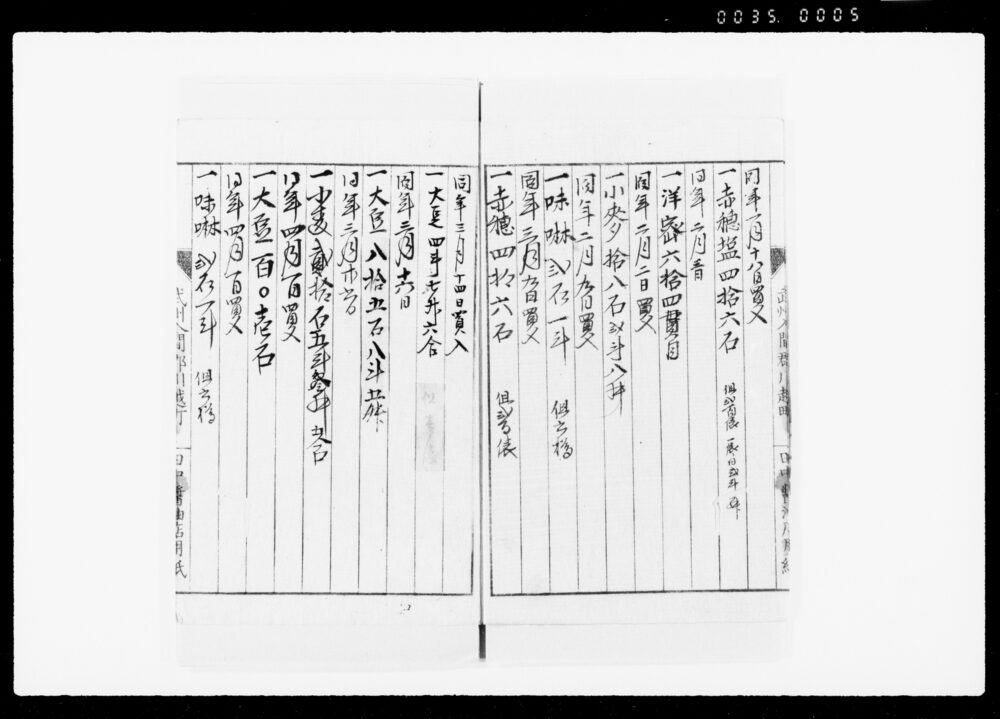 0035. 0005
同年一月十八日買入
一赤穂塩四拾六石 但弐百俵
同年二月
一洋蜜六拾四貫目
同年二月二日買入
一小麦 拾八石弐斗八升
同年二月九日買入
一味啉弐石一斗 但六樽
同年三月九日買入
一赤穂四拾六石 但弐百俵
同年三月十四日買入
一大豆四斗七升六合
同年三月十六日
一大豆八拾五石八斗五升
同年三月
一小麦弐拾石五斗 五合
同年四月一日買入
一大豆百〇壱石
同年四月一日買入
一味啉弐石一斗 但六樽
武州入間郡川越町
田中醤油店用紙